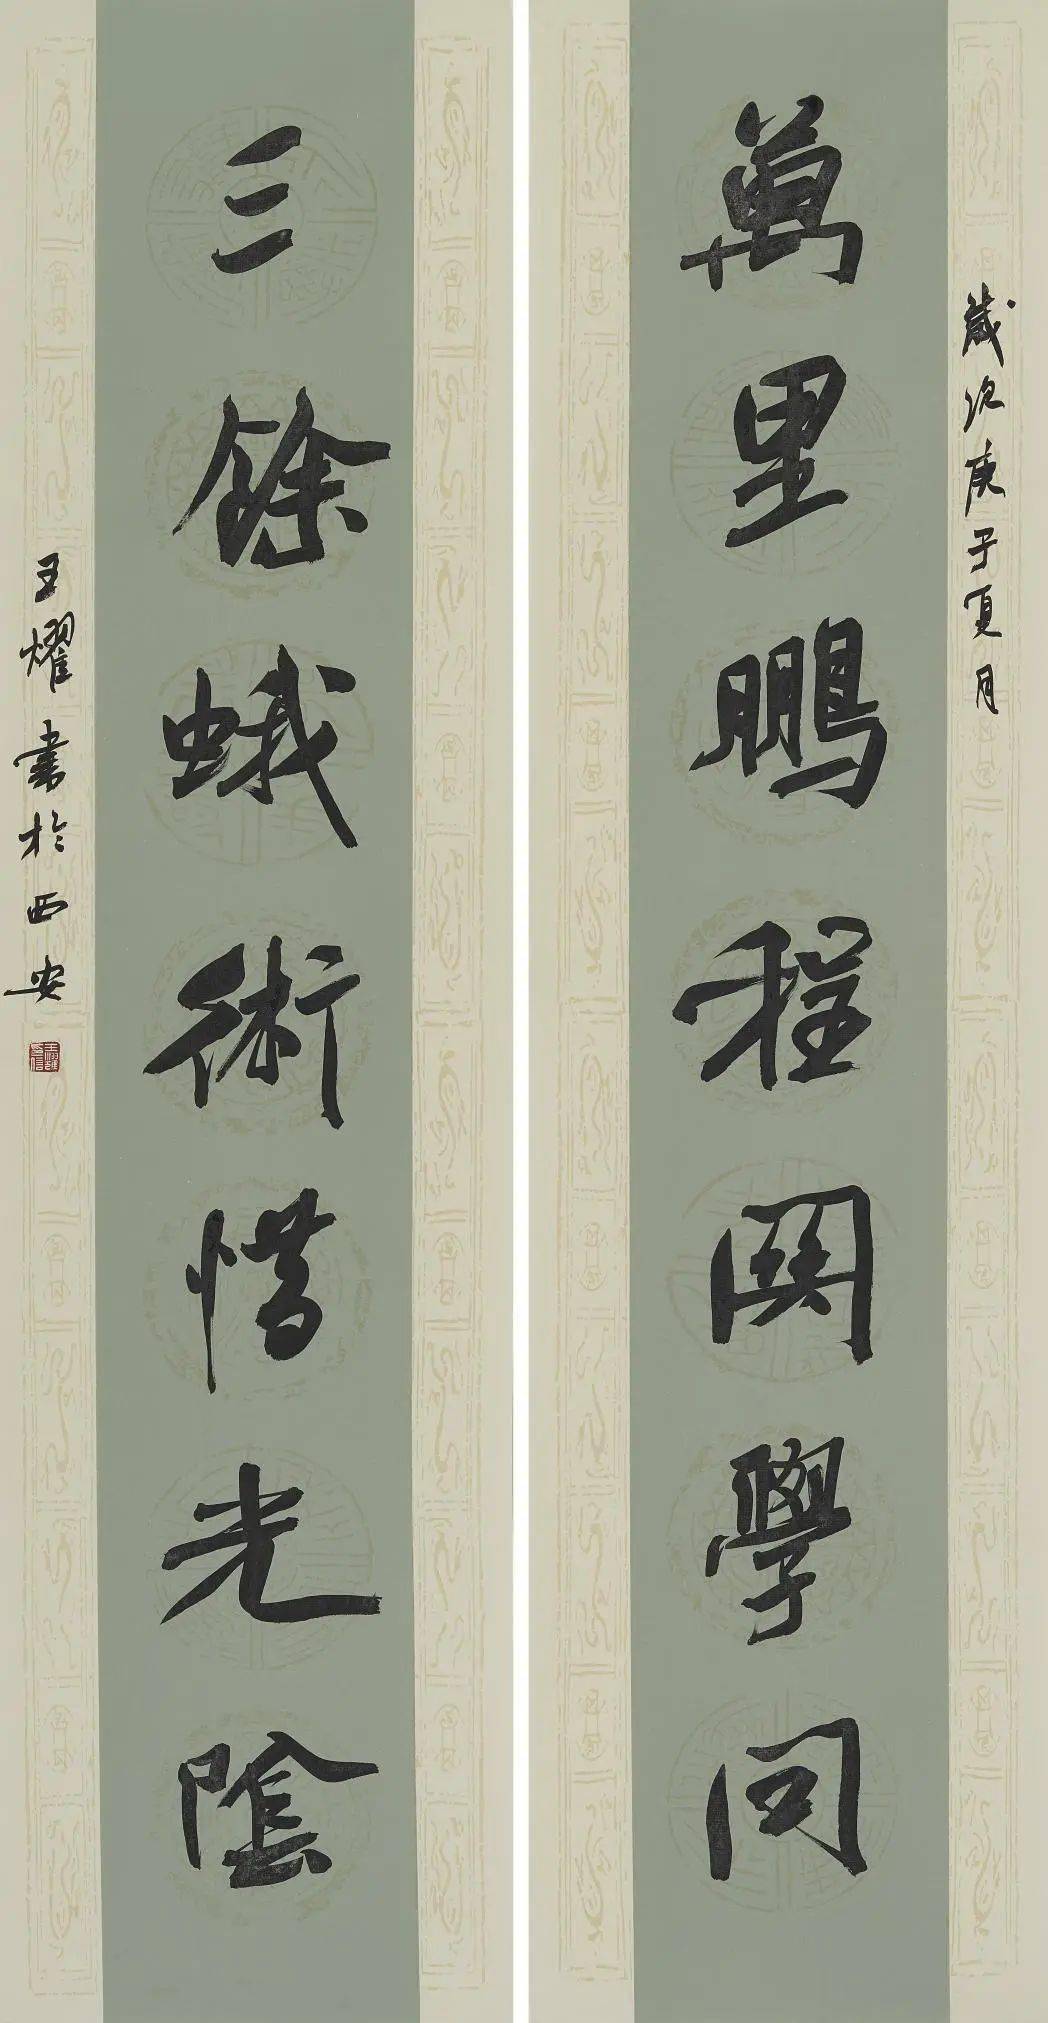 歲次庚子夏月
萬里鵬程關學問
三餘蛾術惜光陰
王燿書於西安